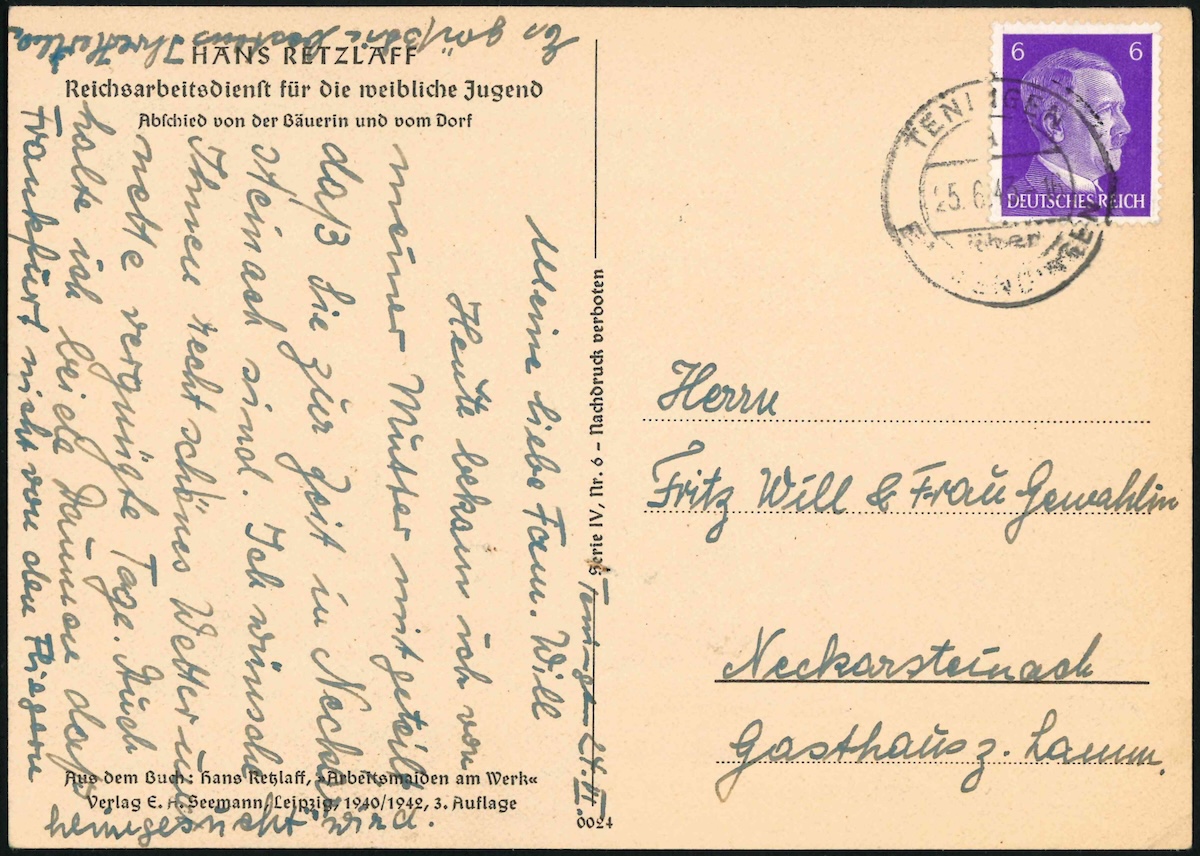 HANS RETZLAFF
Reichsarbeitsdienst für die weibliche Jugend
Abschied von der Bäuerin und vom Dorf
Meine liebe Fam. Will
Heute bekam ich von
meiner Mutter mitgeteilt
daß Sie zur Zeit in Neckar
steinach sind. Ich wünsche
Ihnen recht schönes Wetter u.
nette vergnügte Tage. Auch
halte ich beide Daumen daß
Frankfurt nicht von den Fliegern
heimgesucht wird.
Es grüßt
Aus dem Buch: Hans Retzlaff, »Arbeitsmaiden am Werk«
Verlag E. A. Seemann, Leipzig, 1940/1942, 3. Auflage
Serie IV, Nr. 6 – Nachdruck verboten
0024
6 6
DEUTSCHES REICH
TENINGEN
25.6.4
über
Herrn
Fritz Will & Frau Gemahlin
Neckarsteinach
Gasthaus z. Lamm.